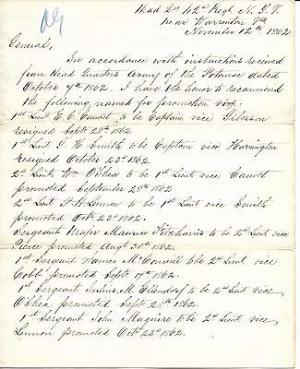 Head Qrs 42nd Regt N.Y.V.
near Warrenton Va
November 12th 1862
General,
In accordance with instructions received
from Head Quarters Army of the Potomac dated
October 7th 1862. I have the honor to recommend
the following named for promotion viz:
1st Lieut E. C. to be Captain vice
resigned Sept 28th 1862.
1st Lieut Smith to be Captain vice Harrington
resigned October 23rd 1862.
2d Lieut Wm O'Shea to be 1st Lieut vice
promoted September 28th 1862
2nd Lieut Lennon to be 1st Lieut vice Smith
promoted Oct 23rd 1862.
Sergeant Major Maurice Fitzharris to be 2nd Lieut vice
Pierce promoted Augt 30th 1862.
1st Sergeant James to be 2d Lieut vice
Cobb promoted Sept 17th 1862.
1st Sergeant Julius M. to be 2nd Lieut vice
O'Shea promoted Sept 28th 1862.
1st Sergeant John Maguire to be 2d Lieut vice
Lennon promoted Oct 23d 1862.